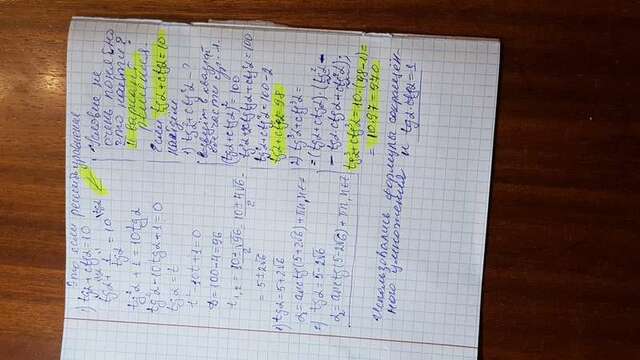 Это если решить уравнение
1) tgα + ctgα = 10
tgα + 1/tgα = 10 |·tgα
tg²α + 1 = 10tgα
tg²α - 10tgα + 1 = 0
tgα = t
t² - 10t + 1 = 0
D = 100 - 4 = 96
t₁,₂ = (10 ± √96)/2 = (10 ± 4√6)/2 =
= 5 ± 2√6
1) tgα = 5 + 2√6
α₁ = arctg(5 + 2√6) + πn, n∈Z
2) tgα = 5 - 2√6
α₂ = arctg(5 - 2√6) + πn, n∈Z
Условие не
очень понятно
что найти?
II вариант
решения.
Если tgα + ctgα = 10
найдем
1) tg²α + ctg²α - ?
возведём в квадрат
обе части ур.
(tgα + ctgα)² = 100
tg²α + 2tgα·ctgα + ctg²α = 100
tg²α + ctg²α = 100 - 2
tg²α + ctg²α = 98
2) tg³α + ctg³α =
= (tgα + ctgα)·(tg²α -
- tgα·ctgα + ctg²α);
tg³α + ctg³α = 10·(98 - 1) =
= 10·97 = 970
Использовались формулы сокращён-
ного умножения и tgα·ctgα = 1